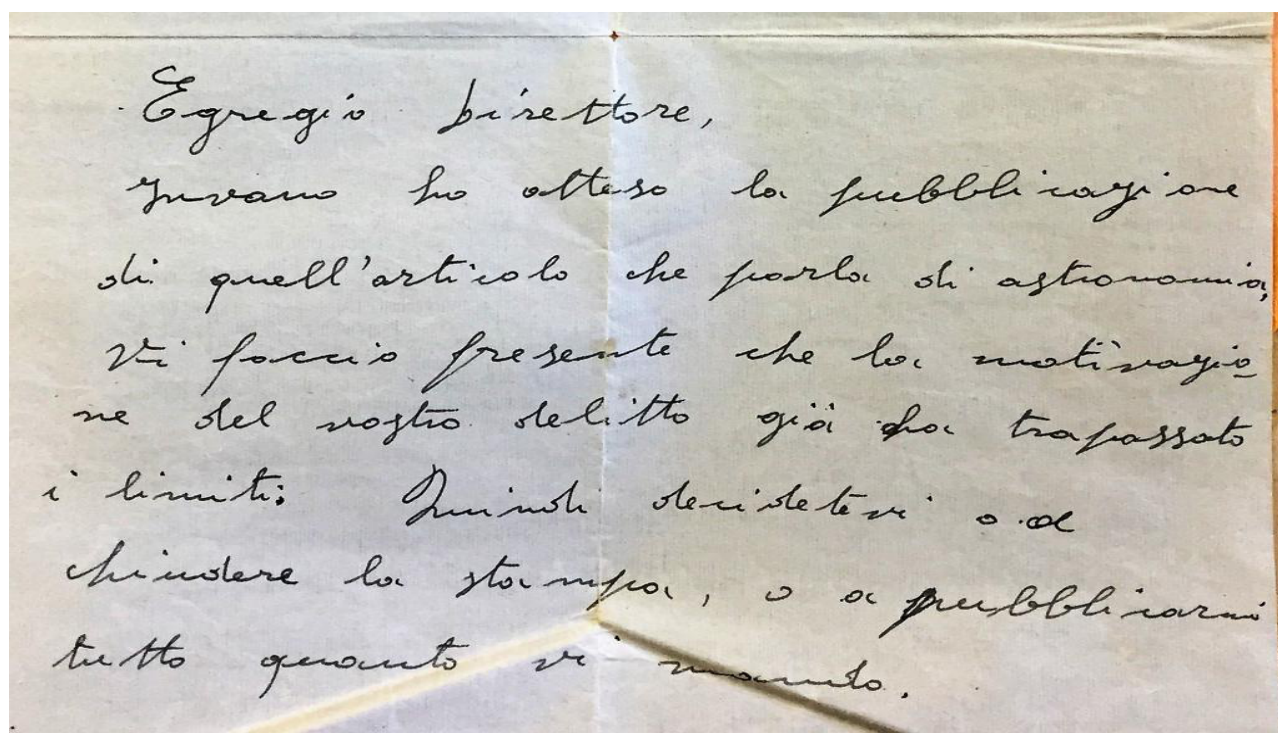 Egregio Direttore,
Invano ho atteso la pubblicazione
di quell'articolo che parla di astronomia,
Vi faccio presente che la motivazio_
ne del vostro delitto già ha trapassato
i limiti: Quindi decidetevi o a
chiudere la stampa, o a pubblicarmi
tutto quanto vi mando.